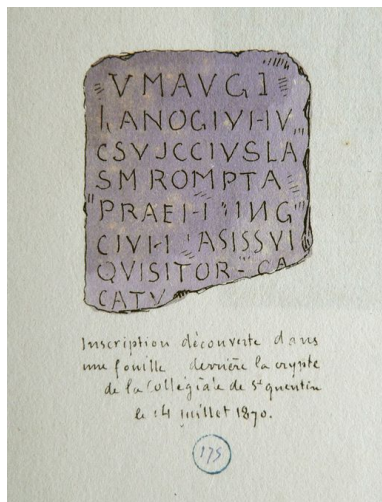 VMAVGI
LANOGIVI-IV
CSVJCCIVSLA
SM ROMPTA
PRAEI-I ING
CIVI-I ASISSVI
QVISITOR - CA
CATV
Inscription découverte dans
une fouille derrière la crypte
de la Collégiale de St quentin
le 14 juillet 1870.
175